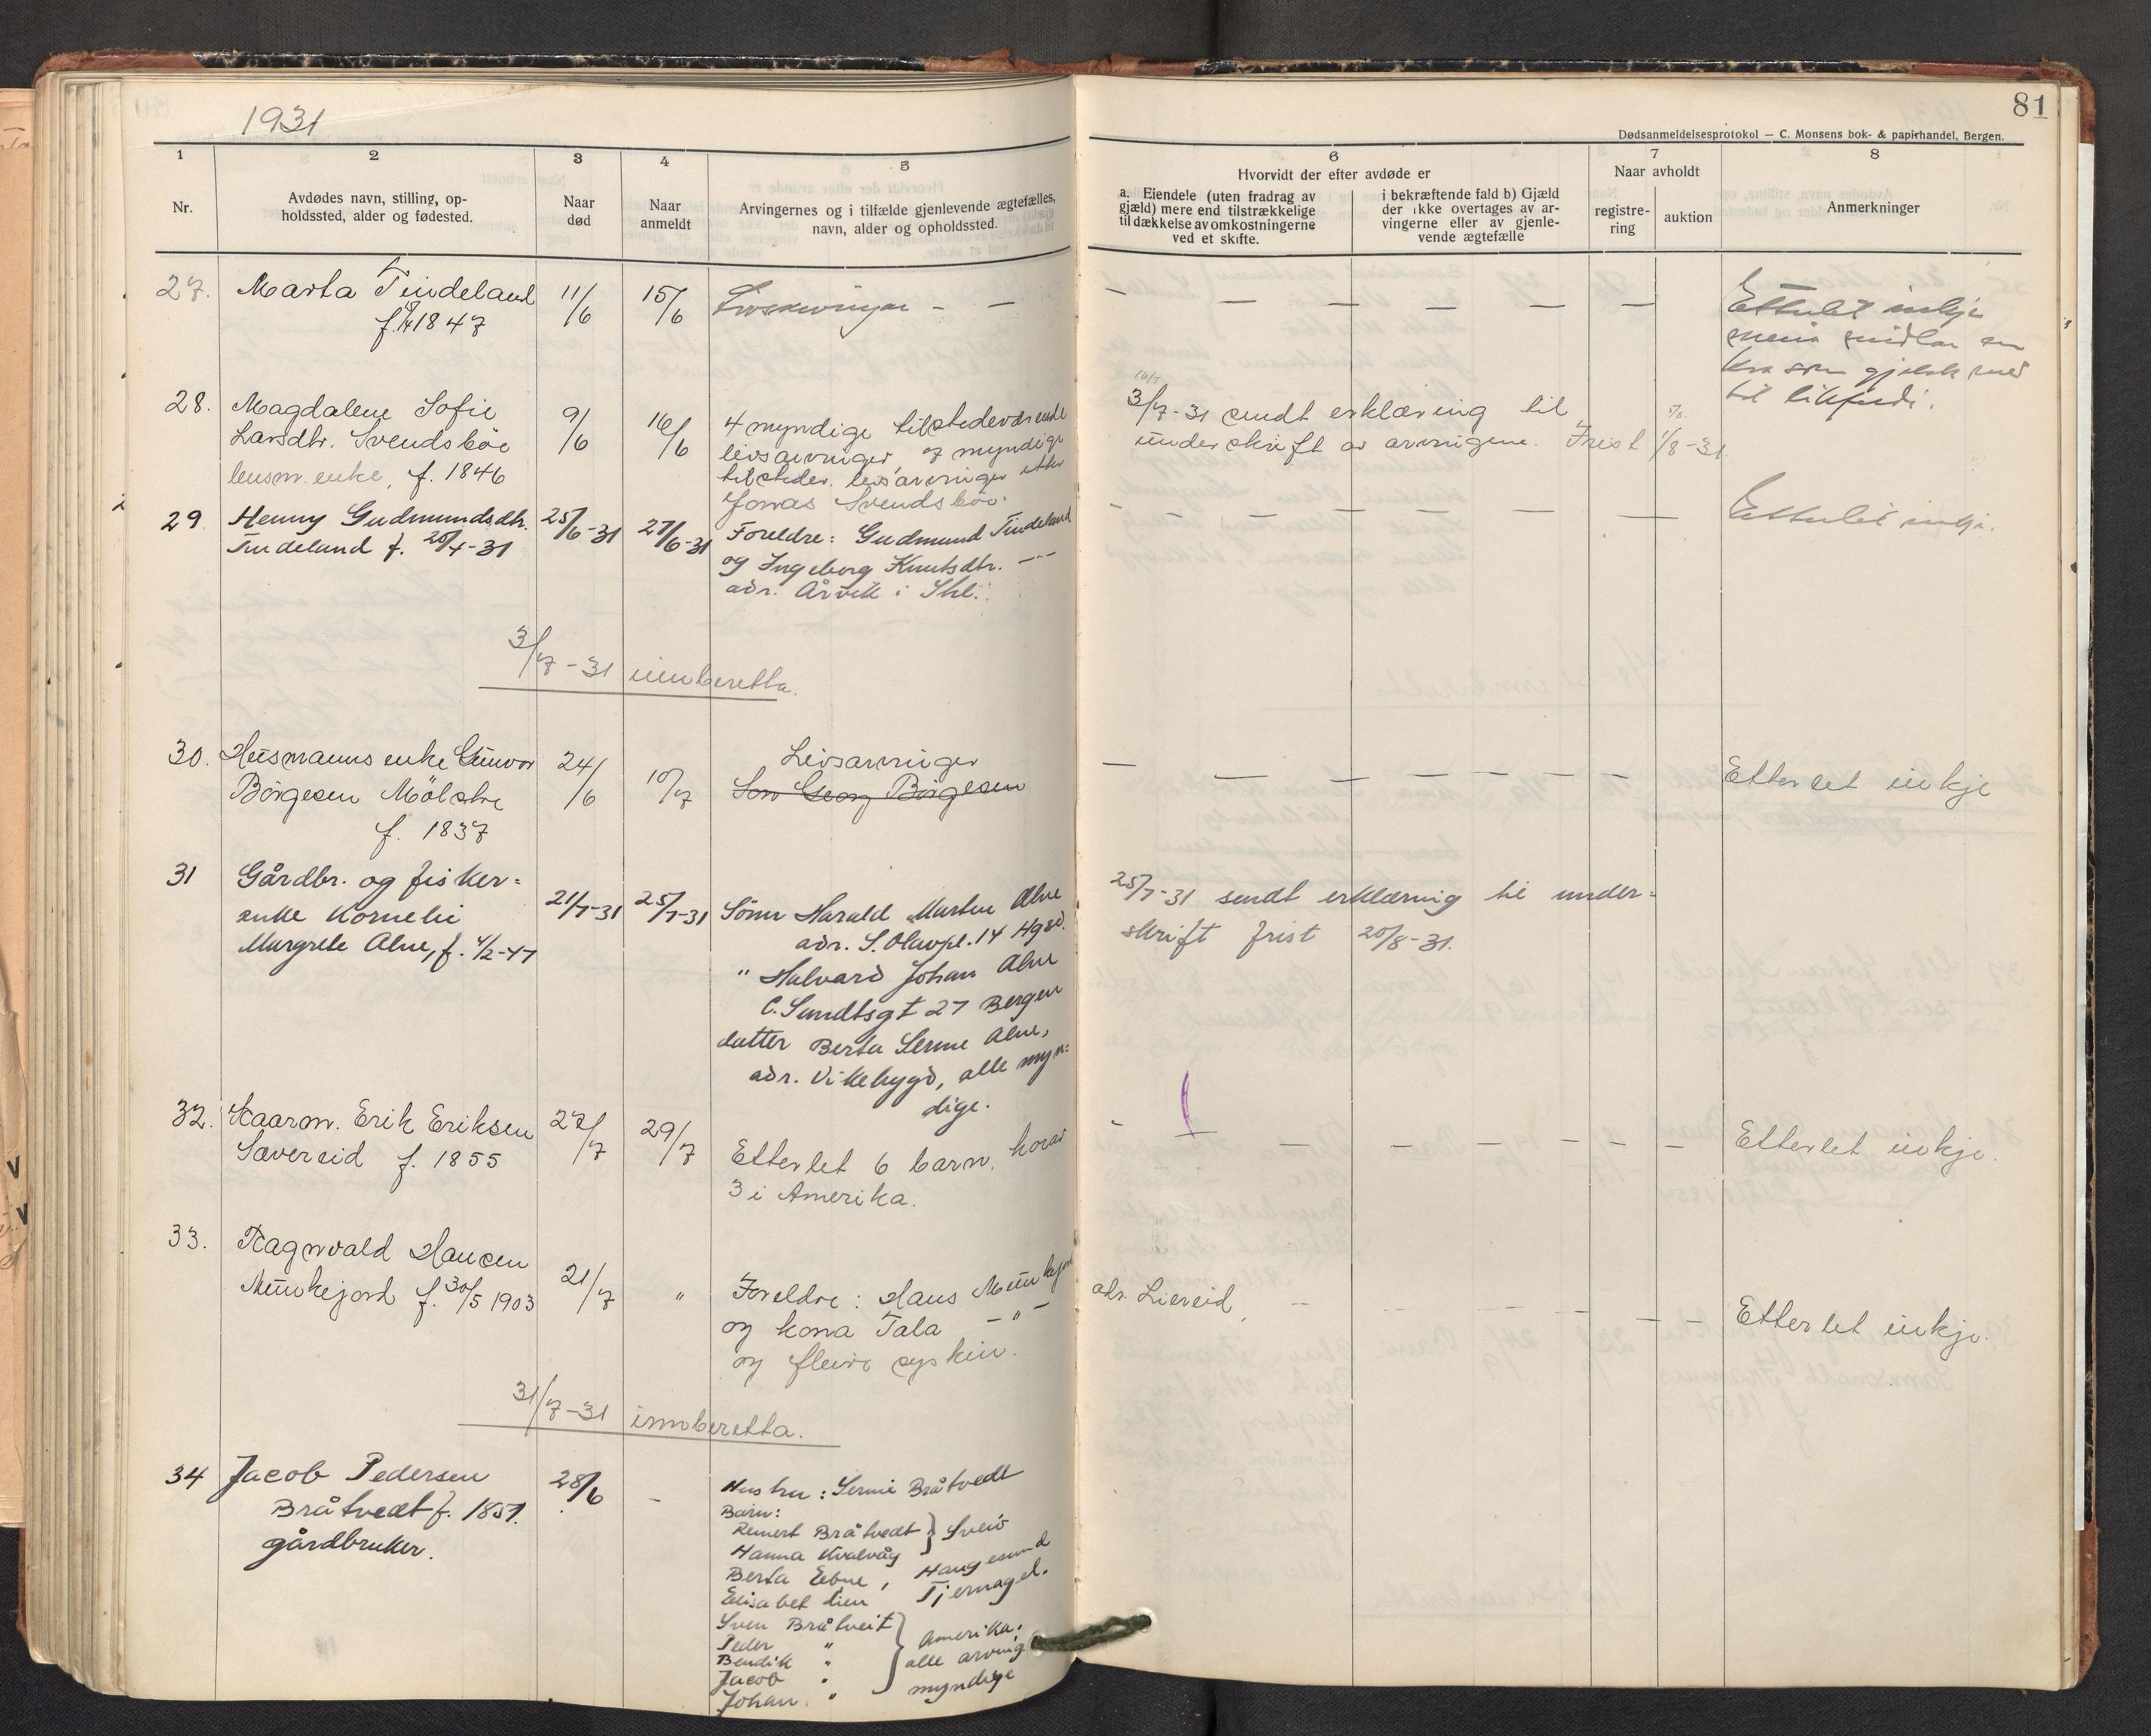 1931
81
Dødsanmeldelsesprotokol — C. Monsens bok- & papirhandel, Bergen.
1 2 3 4 5 6 7 8
Nr.
Avdødes navn, stilling, op-
holdssted, alder og fødested.
Naar
død
Naar
anmeldt
Arvingernes og i tilfælde gjenlevende ægtefælles,
navn, alder og opholdssted.
Hvorvidt der efter avdøde er
a. Eiendele (uten fradrag av
gjæld) mere end tilstrækkelige
til dækkelse av omkostningerne
ved et skifte.
i bekræftende fald b) Gjæld
der ikke overtages av ar-
vingerne eller av gjenle-
vende ægtefælle
Naar avholdt
registre-
ring
auktion
Anmerkninger
27. Marta Tindeland 11/6 15/6 Livsarvingar - —
f. 1847
Etterlet inkje
til likferdi.
28. Magdalene Sofie 9/6 16/6 4 myndige tilstedeværende
Larsdtr. Svendsbøe livsarvinger, og myndige
lensm. enke, f. 1846 tilsteder. livsarvinger etter
Jonas Svendsbøe.
3/7-31 sendt erklæring til
underskrift av arvingene. Frist 1/8-31
29. Henny Gudmundsdtr. 25/6-31 27/6-31 Foreldre: Gudmund Tindeland
Tindeland f. 20/4-31 og Ingeborg Knutsdtr. —"—
adr. Årvik i Skl.
Etterlet inkje.
3/7-31 innberetta.
30. Husmanns enke Gunvor 24/6 10/7 Livsarvinger
Börgesen Mölstre Son Georg Börgesen
f. 1837
Etterlet inkje
31 Gårdbr. og fisker=
enke Kornelie 21/7-31 25/7-31 Sönn Harald Martin Alne
Margrete Alne, f. 4/2-47 adr. S. Olavpl. 14 Hgsd.
" Halvard Johan Alne
C. Sundtsgt 27 Bergen
datter Berta Serine Alne,
adr. Vikebygd, alle myn=
dige.
25/7-31 sendt erklæring til under=
skrift frist 20/8-31.
32. Kaarm. Erik Eriksen 27/7 29/7 Etterlet 6 barn, horav
Sævereid f. 1855 3 i Amerika.
Etterlet inkje.
33. Ragnvald Hansen
Munkejord f. 30/5 1903 21/7 " Foreldre: Hans Munkejord
og kona Tala —"—
og fleire syskin.
adr. Liereid,
Etterlet inkje.
31/7-31 innberetta.
34 Jacob Pedersen 28/6 - Hustru: Serine Bråtvedt
Bråtvedt f. 1851.
gårdbruker.
Barn:
Reinert Bråtvedt } Sveio
Hanna Kvalvåg
Berta Eebne, Haugesund
Elisabet Lien Tjernagel.
Sven Bråtveit } Amerika.
Peder "
Bendik " alle arving
Jacob "
Johan " myndige